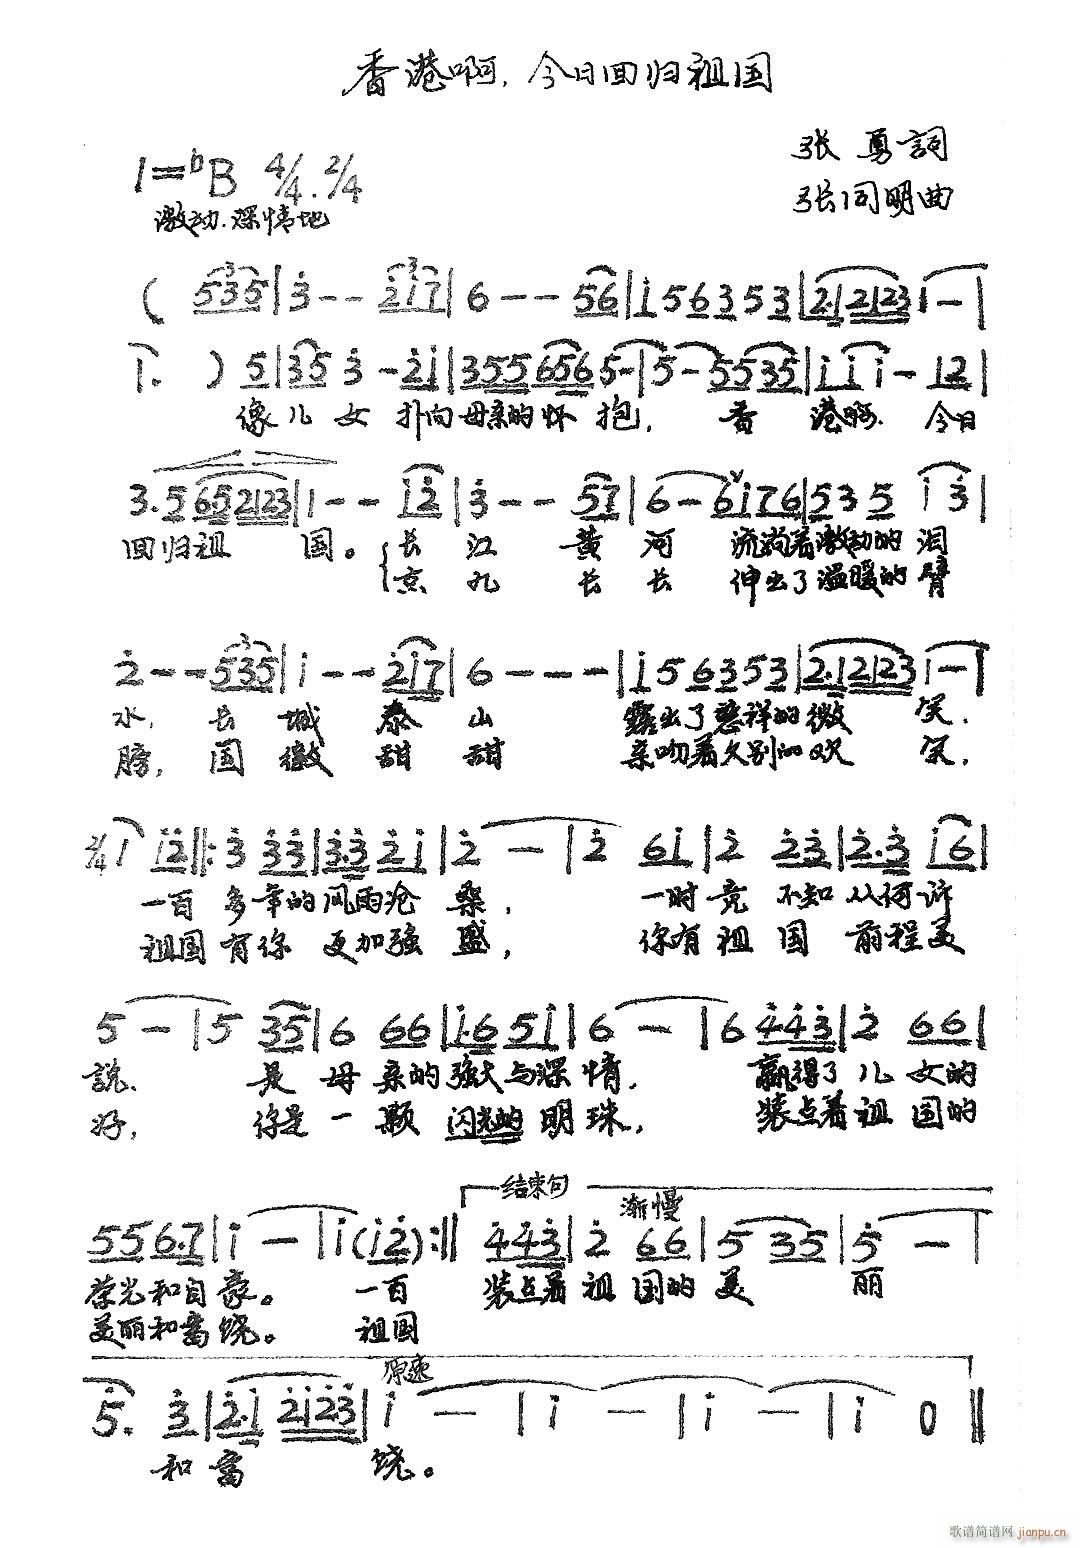 香港啊,今日回归祖国
张 勇詞
1=bB 4/4.2/4
张同明曲
激动.深情地
( 535 | 3 - - 2 1 7 | 6 - - 56 | 1 5 6 3 5 3 | 2·1 2123 1 - |
1. ) 5 | 35 3 - 21 | 355 656 5 - | 5 - 5535 | 1 1 1 - 12 |
像 儿 女 扑向 母亲的 怀 抱, 香 港啊. 今日
3.5 652123 | 1 - - 12 | 3 - - 57 | 6 - 6176 | 535 1 3 |
回归祖 国。 长 江 黄 河 流淌着激动的 泪
京 九 长 长 伸出了温暖的 臂
2 - - 535 | 1 - - 217 | 6 - - - | 1 5 6 3 5 3 | 2·1 2123 1 - |
水. 长 城 泰 山 露出了慈祥的微 笑.
膀, 国 徽 甜 甜 亲吻着久别的欢 笑,
2/4 1 12 |: 3 33 | 3·3 21 | 2 - | 2 61 | 2 23 | 2·3 16 |
一百 多年的 风雨沧 桑, 一时竟 不知 从何诉
祖国 有你 更加强 盛, 你有 祖 国 前程美
5 - | 5 35 | 6 66 | 1·6 51 | 6 - | 6 443 | 2 66 |
説. 是 母 亲的 强大与深 情, 赢得了 儿 女的
好, 你是 一 颗 闪光的 明 珠, 装点着 祖 国的
结束句
渐慢
556·7 | 1 - | 1 (12) :|| 443 | 2 66 | 5 35 | 5 - |
荣光和自 豪。 一百 装点着 祖 国的 美 丽
美丽和富 饶。 祖国
原速
5. 3 | 2·1 2123 | 1 - | 1 - | 1 - | 1 0 ||
和 富 饶。
歌谱简谱网 jianpu.cn